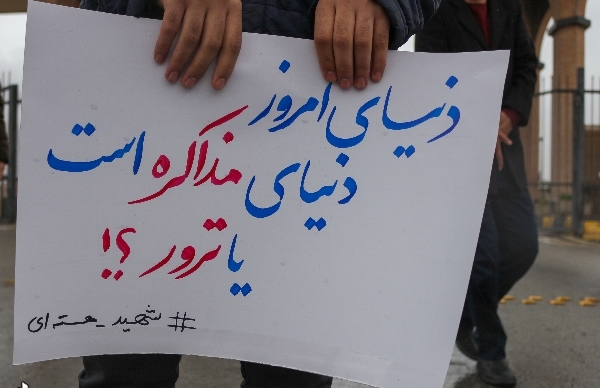 دنیای امروز
دنیای مذاکره است
یا ترور ؟!
#شهید_هسته‌ای